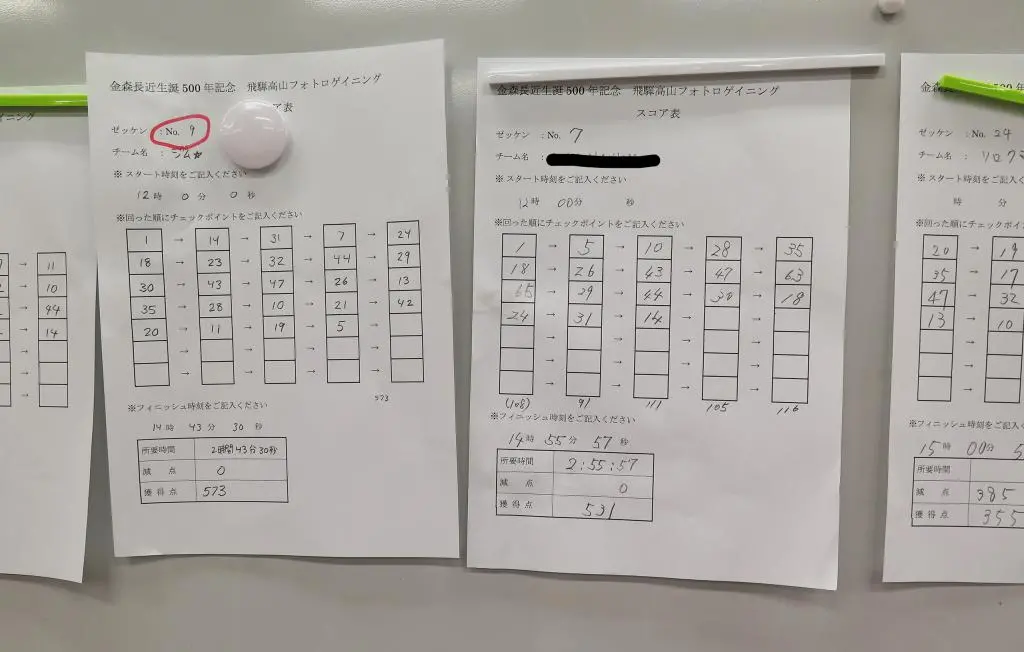 イニング
11
10
44
14
金森長近生誕 500 年記念　飛騨高山フォトロゲイニング
ア表
ゼッケン　: No. 9
チーム名　: ジム☆
※ スタート時刻をご記入ください
12 時　0 分　0 秒
※回った順にチェックポイントをご記入ください
1 → 14 → 31 → 7 → 24
18 → 23 → 32 → 44 → 29
30 → 43 → 47 → 26 → 13
35 → 28 → 10 → 21 → 42
20 → 11 → 19 → 5 →
→ → → →
→ → → →
573
※フィニッシュ時刻をご記入ください
14 時　43 分　30 秒
所要時間　2時間43分30秒
減　点　0
獲 得 点　573
金森長近生誕 500 年記念　飛騨高山フォトロゲイニング
スコア表
ゼッケン　: No. 7
チーム名　:
※ スタート時刻をご記入ください
12 時　00 分　秒
※回った順にチェックポイントをご記入ください
1 → 5 → 10 → 28 → 35
18 → 26 → 43 → 47 → 63
65 → 29 → 44 → 30 → 18
24 → 31 → 14 → →
→ → → →
→ → → →
→ → → →
(108)　91　111　105　116
※フィニッシュ時刻をご記入ください
14 時　55 分　57 秒
所要時間　2:55:57
減　点　0
獲 得 点　531
金森
ゼッケン　: No. 24
チーム名　: リロクマ
※ スタート時刻をご記入
時　分
※回った順にチェックポイ
20 → 19
35 → 17
47 → 32
13 → 10
→
→
→
※フィニッシュ時刻をご
15 時　00 分　5
所要時間
減　点　385
獲 得 点　355